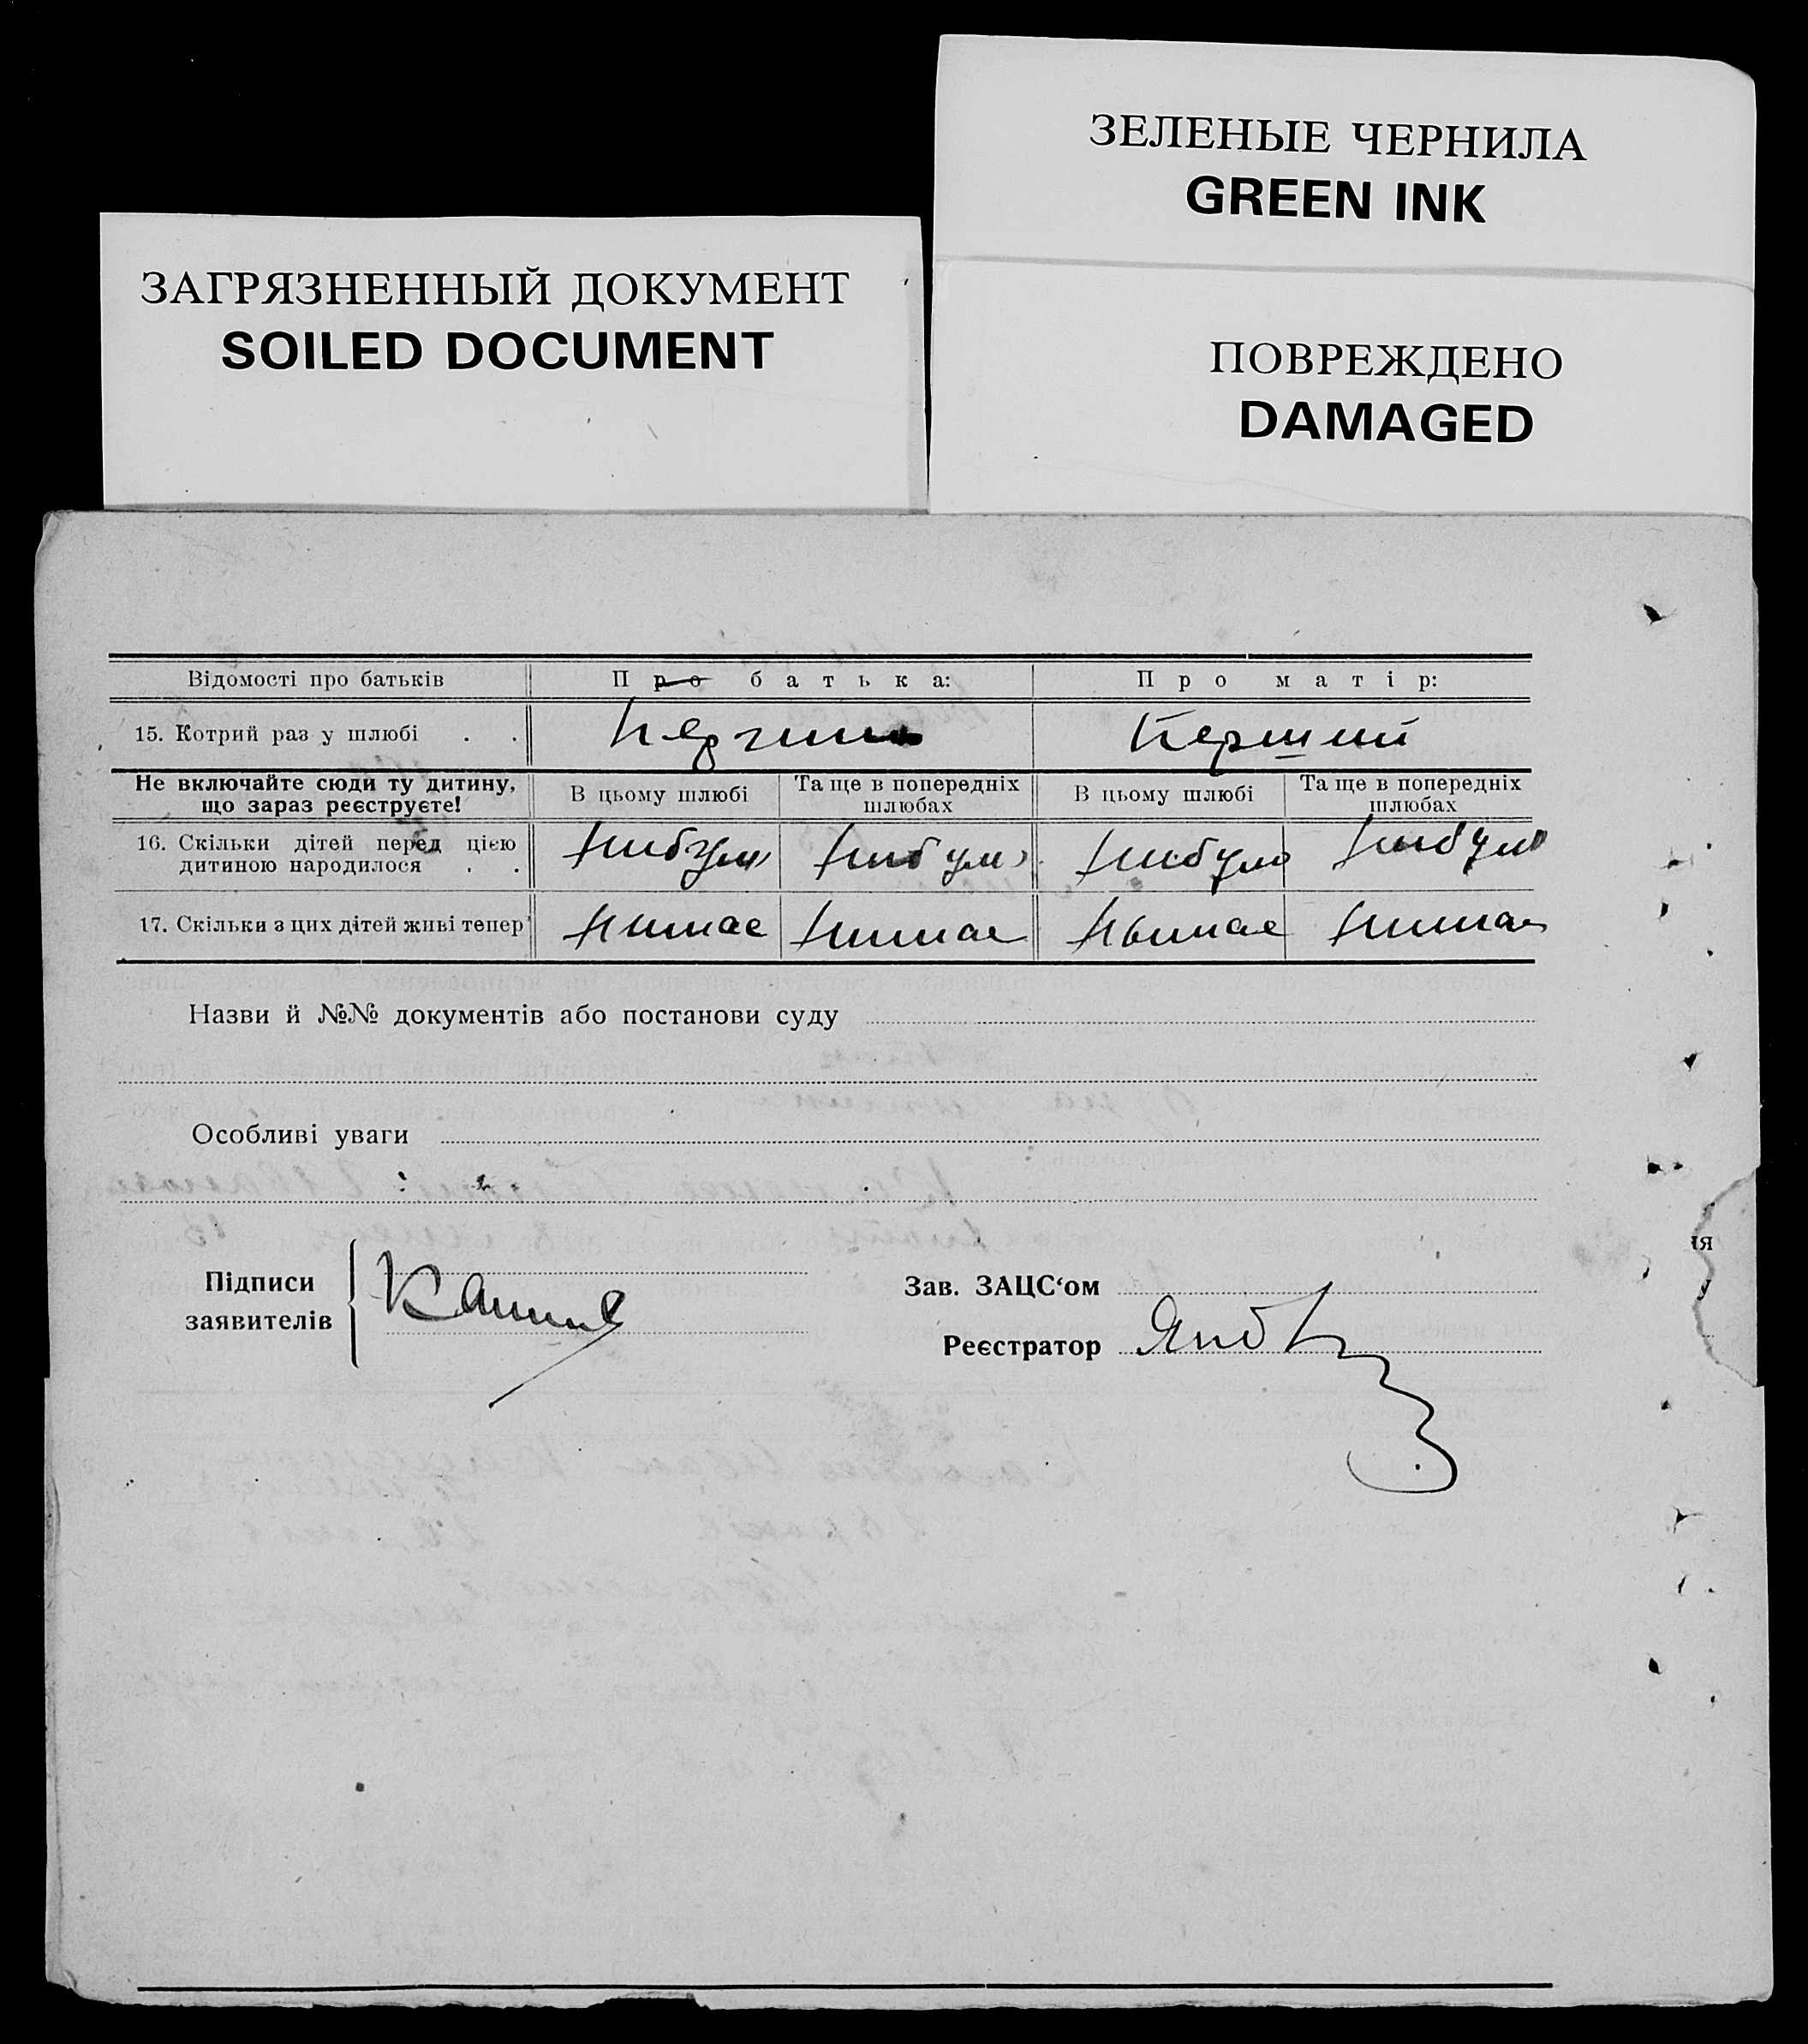 ЗЕЛЕНЫЕ ЧЕРНИЛА
GREEN INK
ЗАГРЯЗНЕННЫЙ ДОКУМЕНТ
SOILED DOCUMENT
ПОВРЕЖДЕНО
DAMAGED
Відомості про батьків Про батька: Про матір:
15. Котрий раз у шлюбі . . Перший
Не включайте сюди ту дитину, що зараз реєструєте! В цьому шлюбі Та ще в попередніх шлюбах В цьому шлюбі Та ще в попередніх шлюбах
16. Скільки дітей перед цією
дитиною народилося . . нибуло нибуло нибуло нибуло
17. Скільки з цих дітей живі тепер нимає нимає нимає нимає
Назви й №№ документів або постанови суду
Особливі уваги
Підписи
заявителів
Зав. ЗАЦС‘ом
Реєстратор